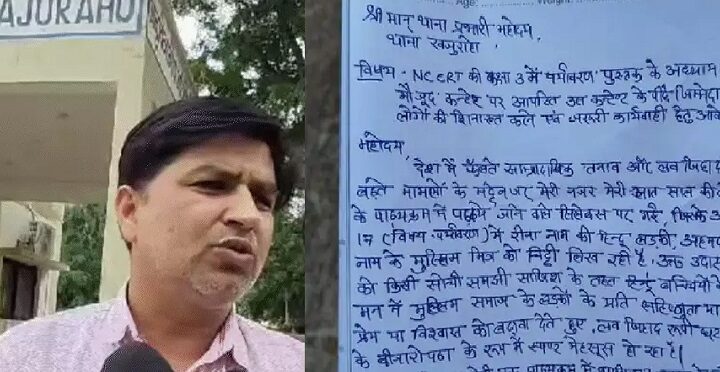 AJURAHO
Age:
Weight:
श्री मान् थाना प्रभारी महोदय,
थाना खजुराहो,
विषय - NCERT की कक्षा 3 में पर्यावरण पुस्तक के अध्याय
मौजूद कन्टेन्ट पर आपत्ति उस कन्टेन्ट के पीछे जिम्मेदा
लोगों की शिनाख्त करने एवं जरूरी कार्यवाही हेतु आवे
महोदय,
देश में फैलते साम्प्रदायिक तनाव और लव जिहाद
बढ़ते मामलों के मद्देनजर मेरी नजर मेरी सात साल की
के पाठ्यक्रम में पढ़ाये जाने वाले सिलेबस पर गई जिसके
17 (विषय-पर्यावरण) में रीना नाम की हिन्दू लड़की, अहमद
नाम के मुस्लिम मित्र को चिट्ठी लिख रही है, उक्त उदा
को किसी सोची समझी साजिश के तहत हिन्दू बच्चियों
मन में मुस्लिम समाज के लड़कों के प्रति
प्रेम या विश्वास को बढ़ावा देते हुए, लव जिहाद रूपी
के बीजारोपण के रूप में स्पष्ट महसूस हो रहा है।